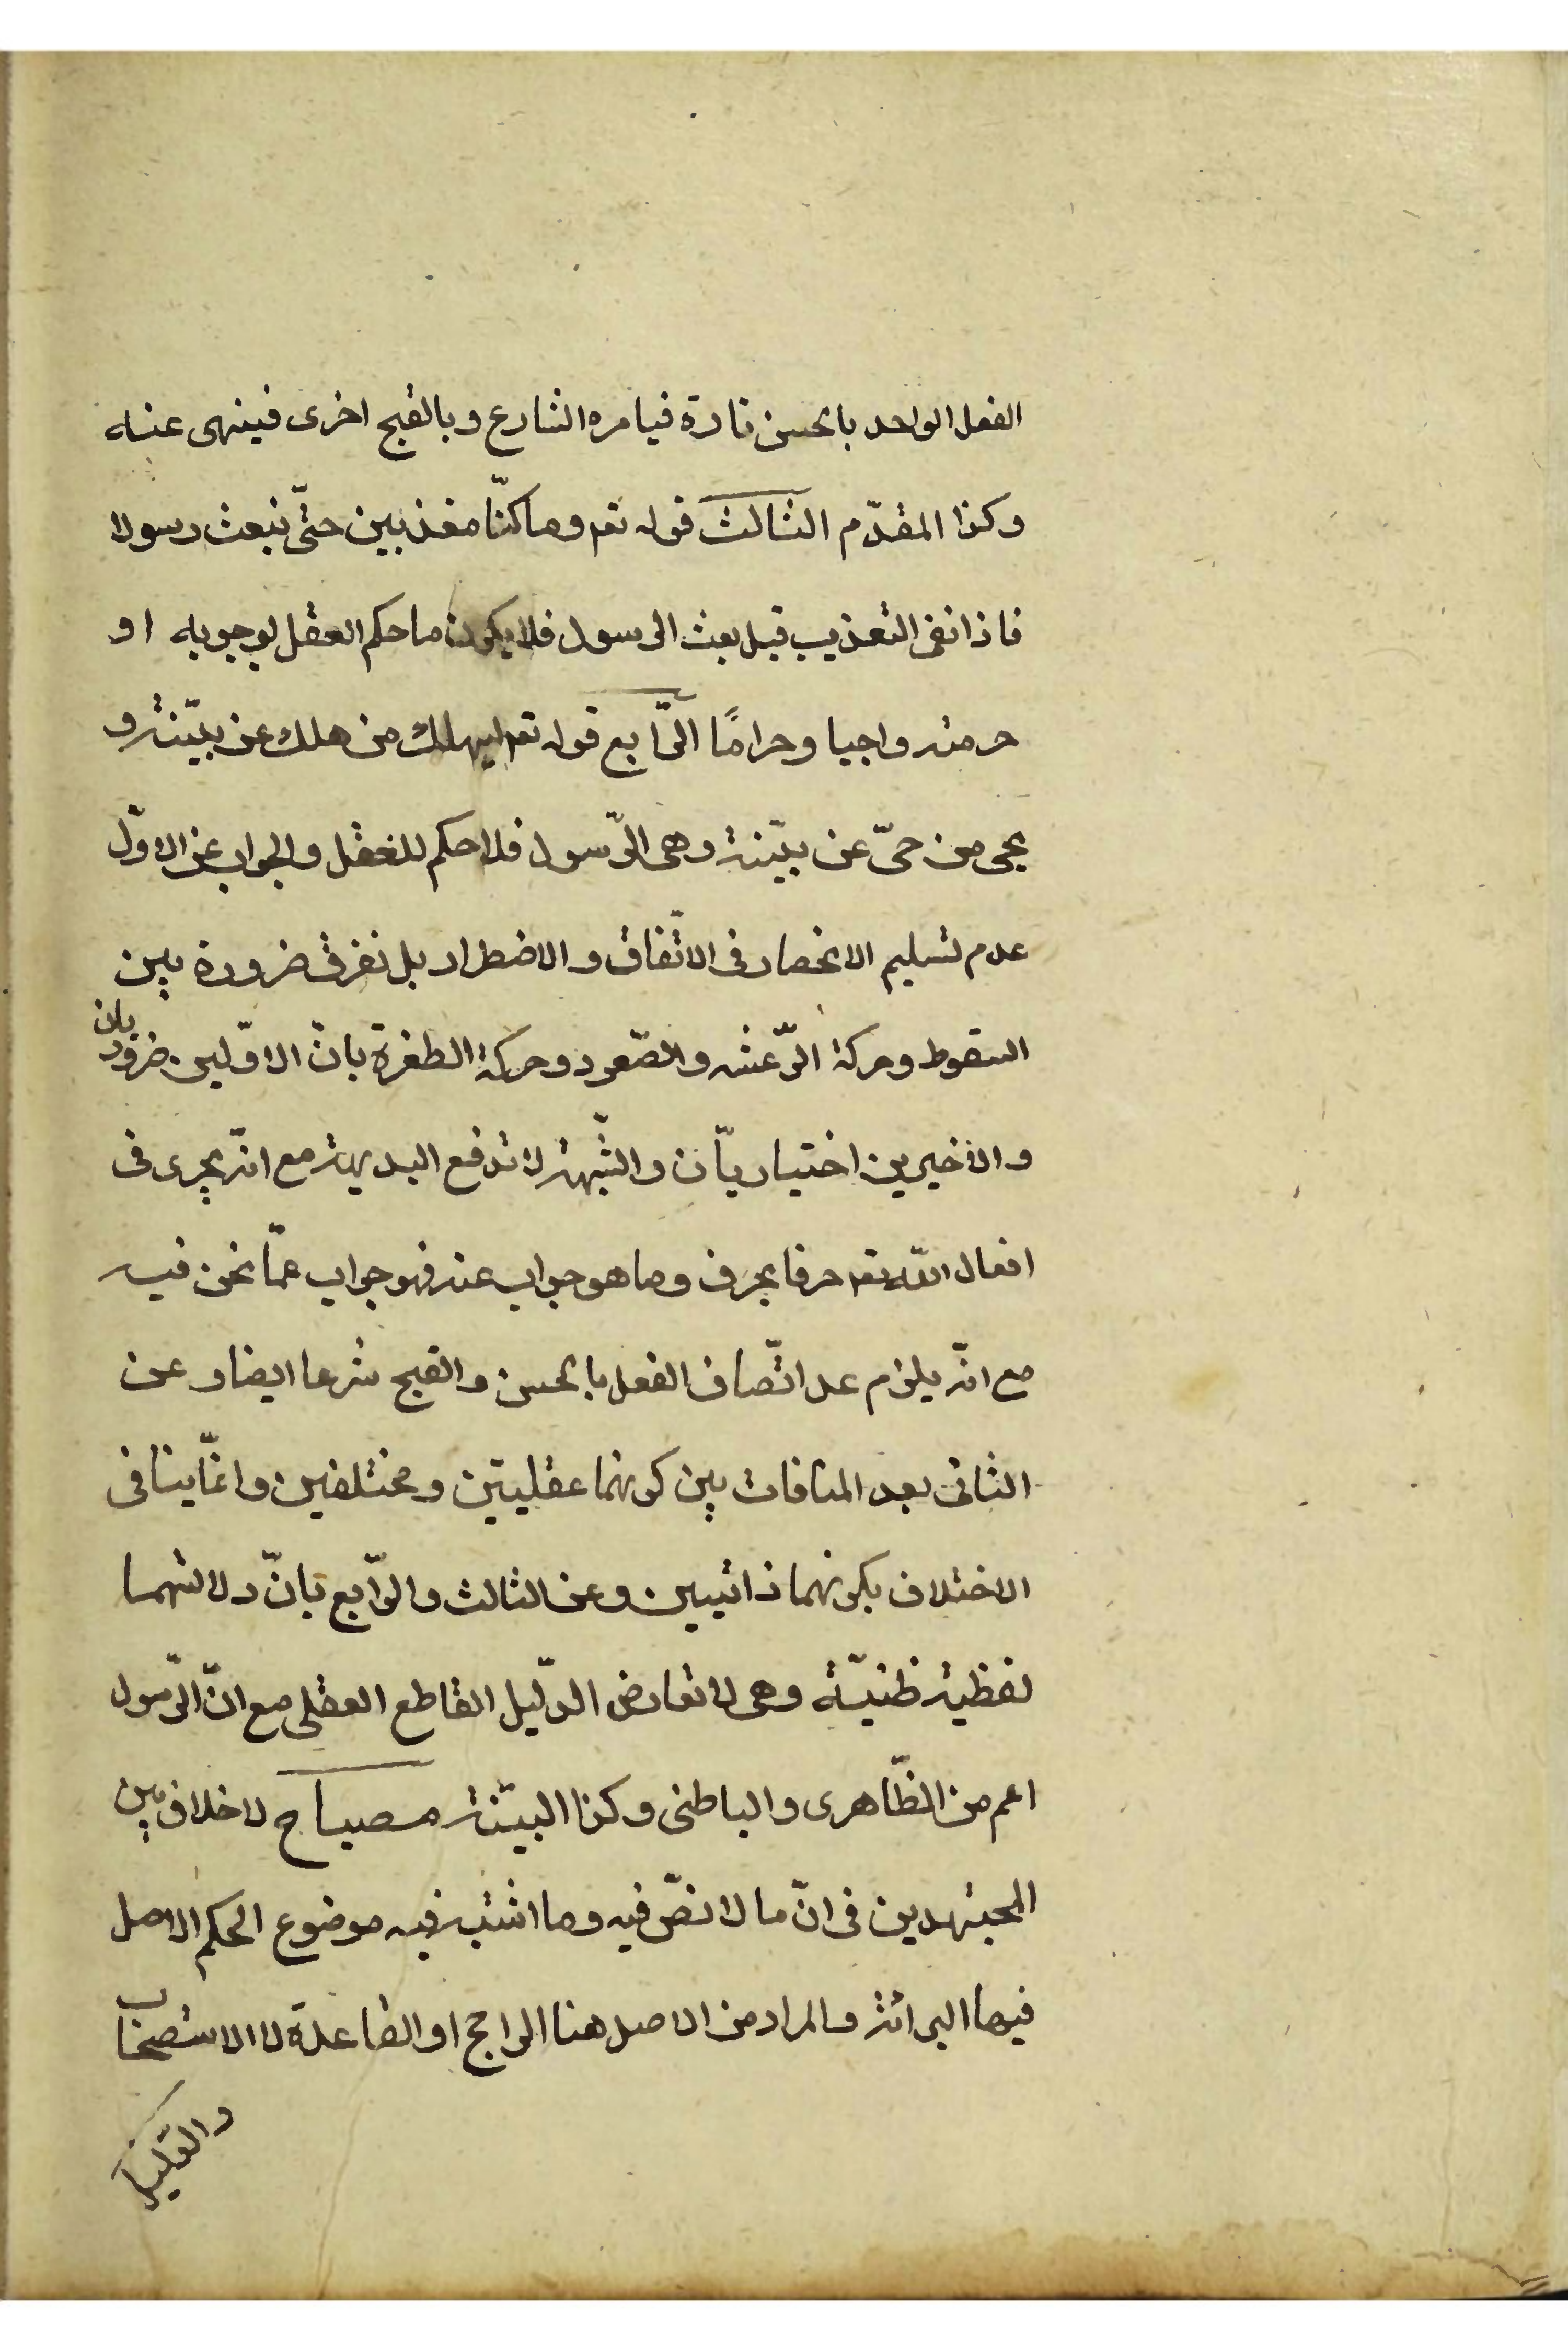 الفعل الواحد بالحسن تارة فيامره الشارع وبالقبح اخرى فينهى عنه
وكذا المقدّم الثالث قوله تعـ وما كنّا معذبين حتّى نبعث رسولا
فاذا نفى التعذيب قبل بعث الرسول فلا يكون ما حكم العقل بوجوبه او
حرمته واجبا وحرامًا الرّابع قوله تعـ ليهلك من هلك عن بيّنة و
يحيى من حىّ عن بيّنة وهى الرّسول فلا حكم للعقل والجواب عن الاوّل
عدم تسليم الانحصار فى الاتّفاق والاضطرار بل نفرق ضرورة بين
السقوط وحركة الرّعشه والصّعود وحركة الطفرة بانّ الاوّلين ضروريان
والاخيرين اختياريّان والشّبهة لا تدفع البديهة مع انّه يجرى فى
افعال اللّه تعـ حرفا بحرف وما هو جواب عنه فهو جواب عمّا نحن فيه
مع انّه يلزم عد اتّصاف الفعل بالحسن والقبح شرعا ايضا وعن
الثانى بعد المنافات بين كونهما عقليتين ومختلفين وانّما ينافى
الاختلاف بكونهما ذاتيين وعن الثالث والرّابع بانّ دلالتهما
لفظية ظنيّة وهى لا تعارض الدّليل القاطع العقلى مع انّ الرّسول
اعم من الظّاهرى والباطنى وكذا البيّنة مصباح لا خلاف بين
المجتهدين فى انّ ما لا نصّ فيه وما اشتبه فيه موضوع الحكم الاصل
فيها البرائة والمراد من الاصل هنا الراجح او القاعدة لا الاستصحاب